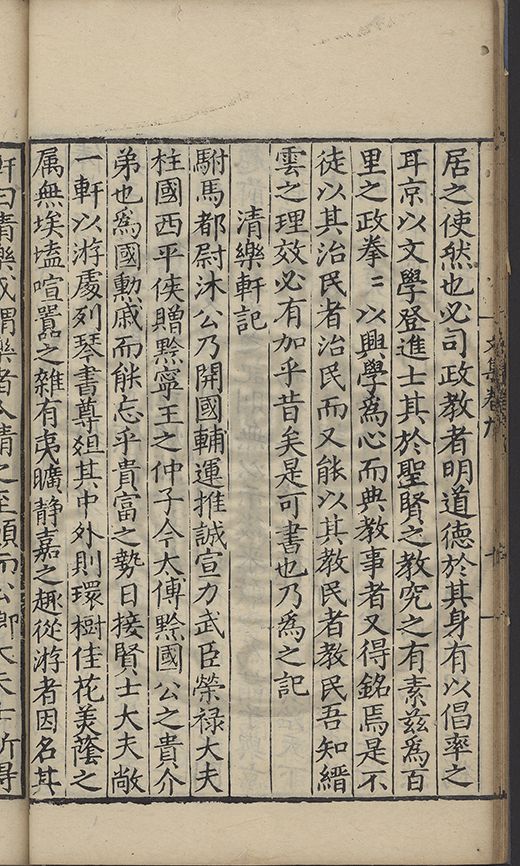 居之使然也必司政教者明道德於其身有以倡率之
耳京以文學登進士其於聖賢之教究之有素兹為百
里之政拳〻以興學為心而典教事者又得銘焉是不
徒以其治民者治民而又能以其教民者教民吾知縉
雲之理效必有加乎昔矣是可書也乃為之記
清樂軒記
駙馬都尉沐公乃開國輔運推誠宣力武臣榮禄大夫
柱國西平侯贈黔寧王之仲子今太傅黔國公之貴介
弟也為國勲戚而能忘乎貴富之勢日接賢士大夫敞
一軒以游處列琴書尊俎其中外則環樹佳花美蔭之
属無埃壒喧囂之雜有夷曠静嘉之趣從游者因名其
軒曰清樂或謂樂者人情之至願而公卿大夫士所得